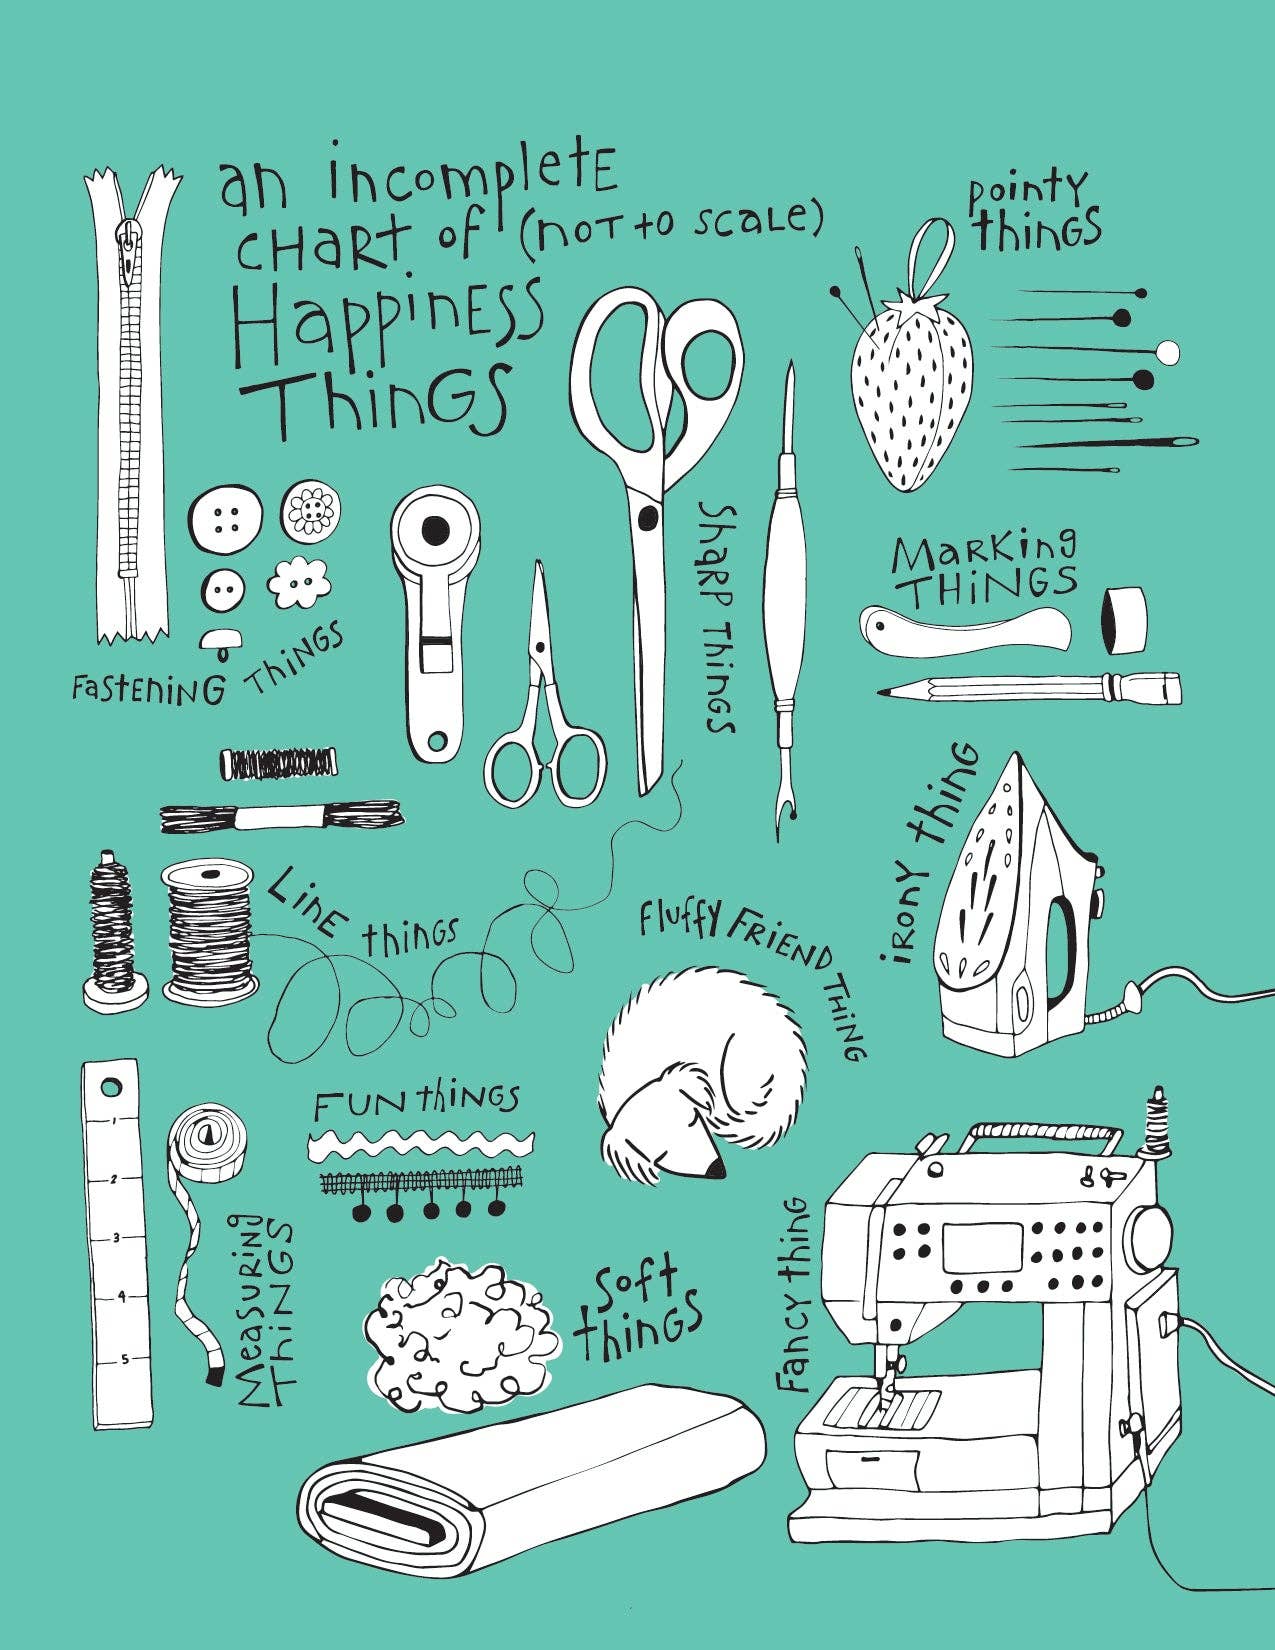 an incomplete
CHART of (not to scale)
Happiness
Things
pointy
things
Sharp Things
Marking
THINGS
Fastening Things
irony thing
Line things
Fluffy Friend Thing
FUN things
1
2
3
4
5
Measuring
Things
Soft
things
Fancy thing